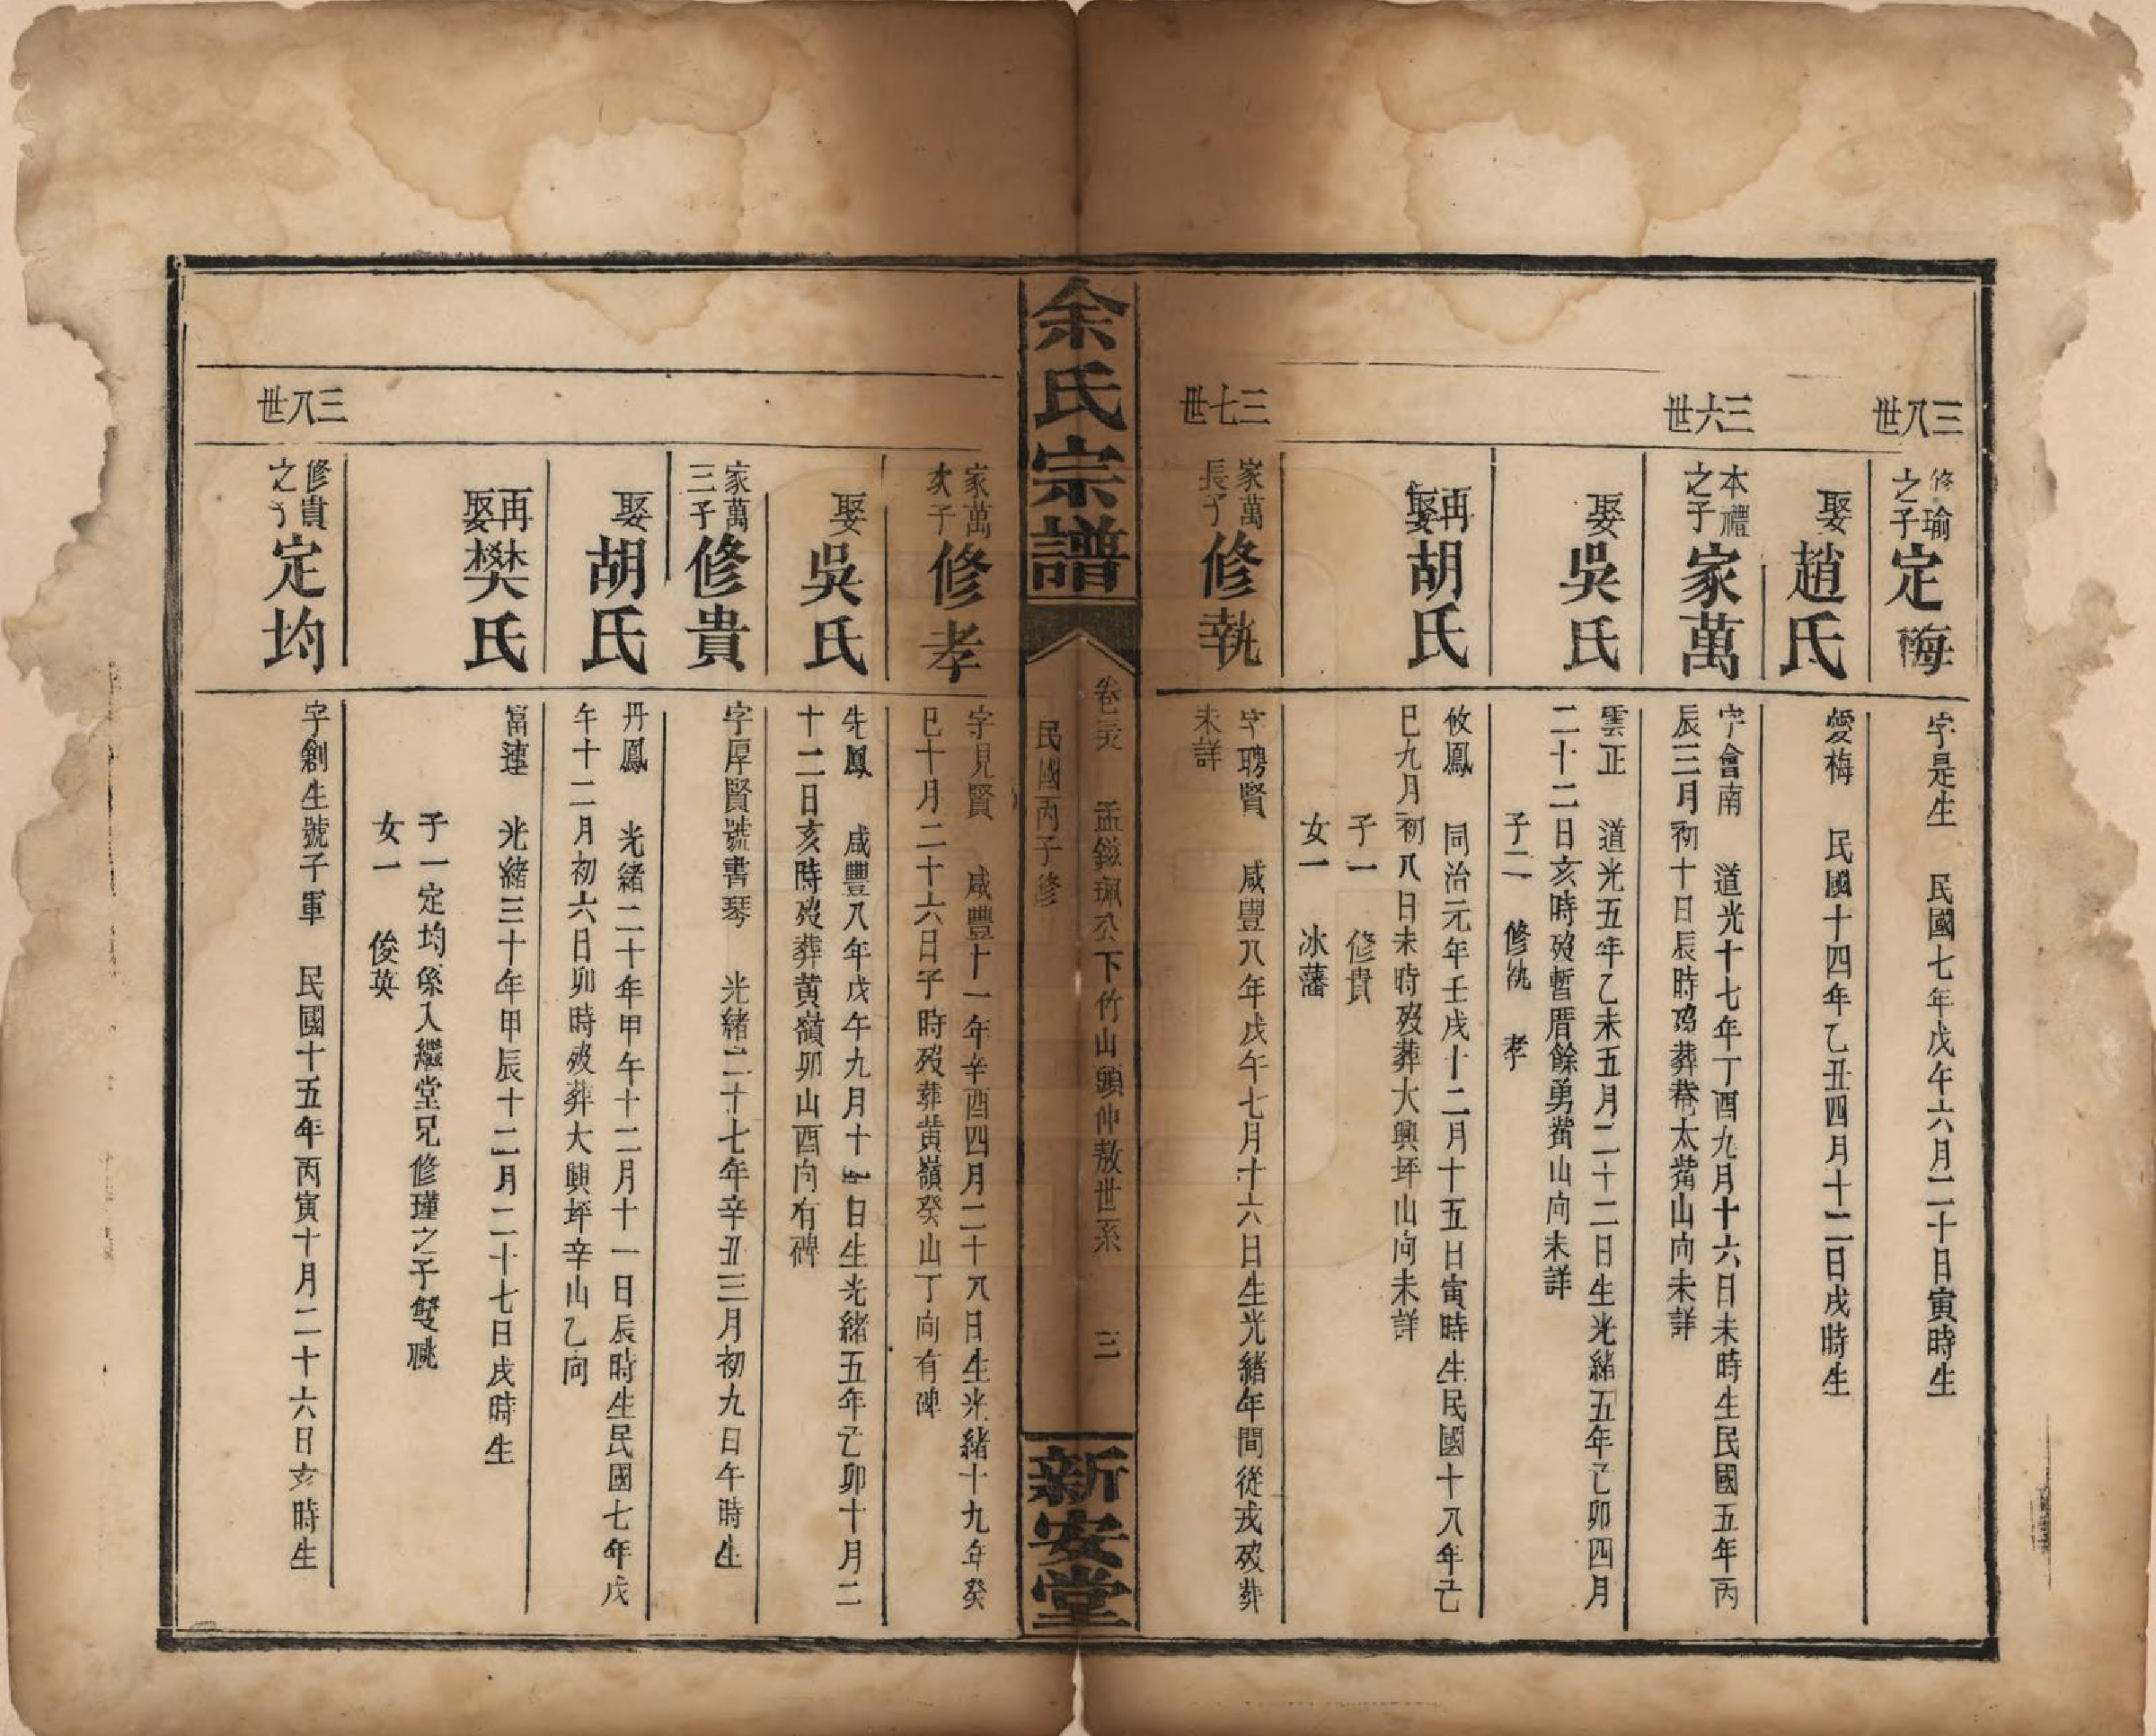 三八世
修瑜
之子
定梅
字是生 民國七年戊午六月二十日寅時生
娶
趙氏
愛梅 民國十四年乙丑四月十二日戌時生
三六世
本禮
之子
家萬
字會南 道光十七年丁酉九月十六日未時生民國五年丙
辰三月初十日辰時歿葬菴太觜山向未詳
娶
吳氏
雲正 道光五年乙未五月二十二日生光緒五年己卯四月
二十二日亥時歿暫厝餘勇觜山向未詳
子二 修執 孝
再娶
胡氏
攸鳳 同治元年壬戌十二月十五日寅時生民國十八年己
巳九月初八日未時歿葬大興坪山向未詳
子一 修貴
女一 冰藩
三七世
家萬
長子
修執
字聘賢 咸豐八年戊午七月十六日生光緒年間從戎歿葬
未詳
余氏宗譜
卷三 孟鎰珮公下竹山頭仲敖世系 三
民國丙子修
新安堂
家萬
次子
修孝
字見賢 咸豐十一年辛酉四月二十八日生光緒十九年癸
巳十月二十六日子時歿葬黃嶺癸山丁向有碑
娶
吳氏
先鳳 咸豐八年戊午九月十一日生光緒五年己卯十月二
十二日亥時歿葬黃嶺卯山酉向有碑
家萬
三子
修貴
字厚賢號書琴 光緒二十七年辛丑三月初九日午時生
娶
胡氏
丹鳳 光緒二十年甲午十二月十一日辰時生民國七年戊
午十二月初六日卯時歿葬大興坪辛山乙向
再娶
樊氏
富連 光緒三十年甲辰十二月二十七日戌時生
子一定均係入繼堂兄修瑾之子雙祧
女一 俊英
三八世
修貴
之子
定均
字創生號子軍 民國十五年丙寅十月二十六日亥時生